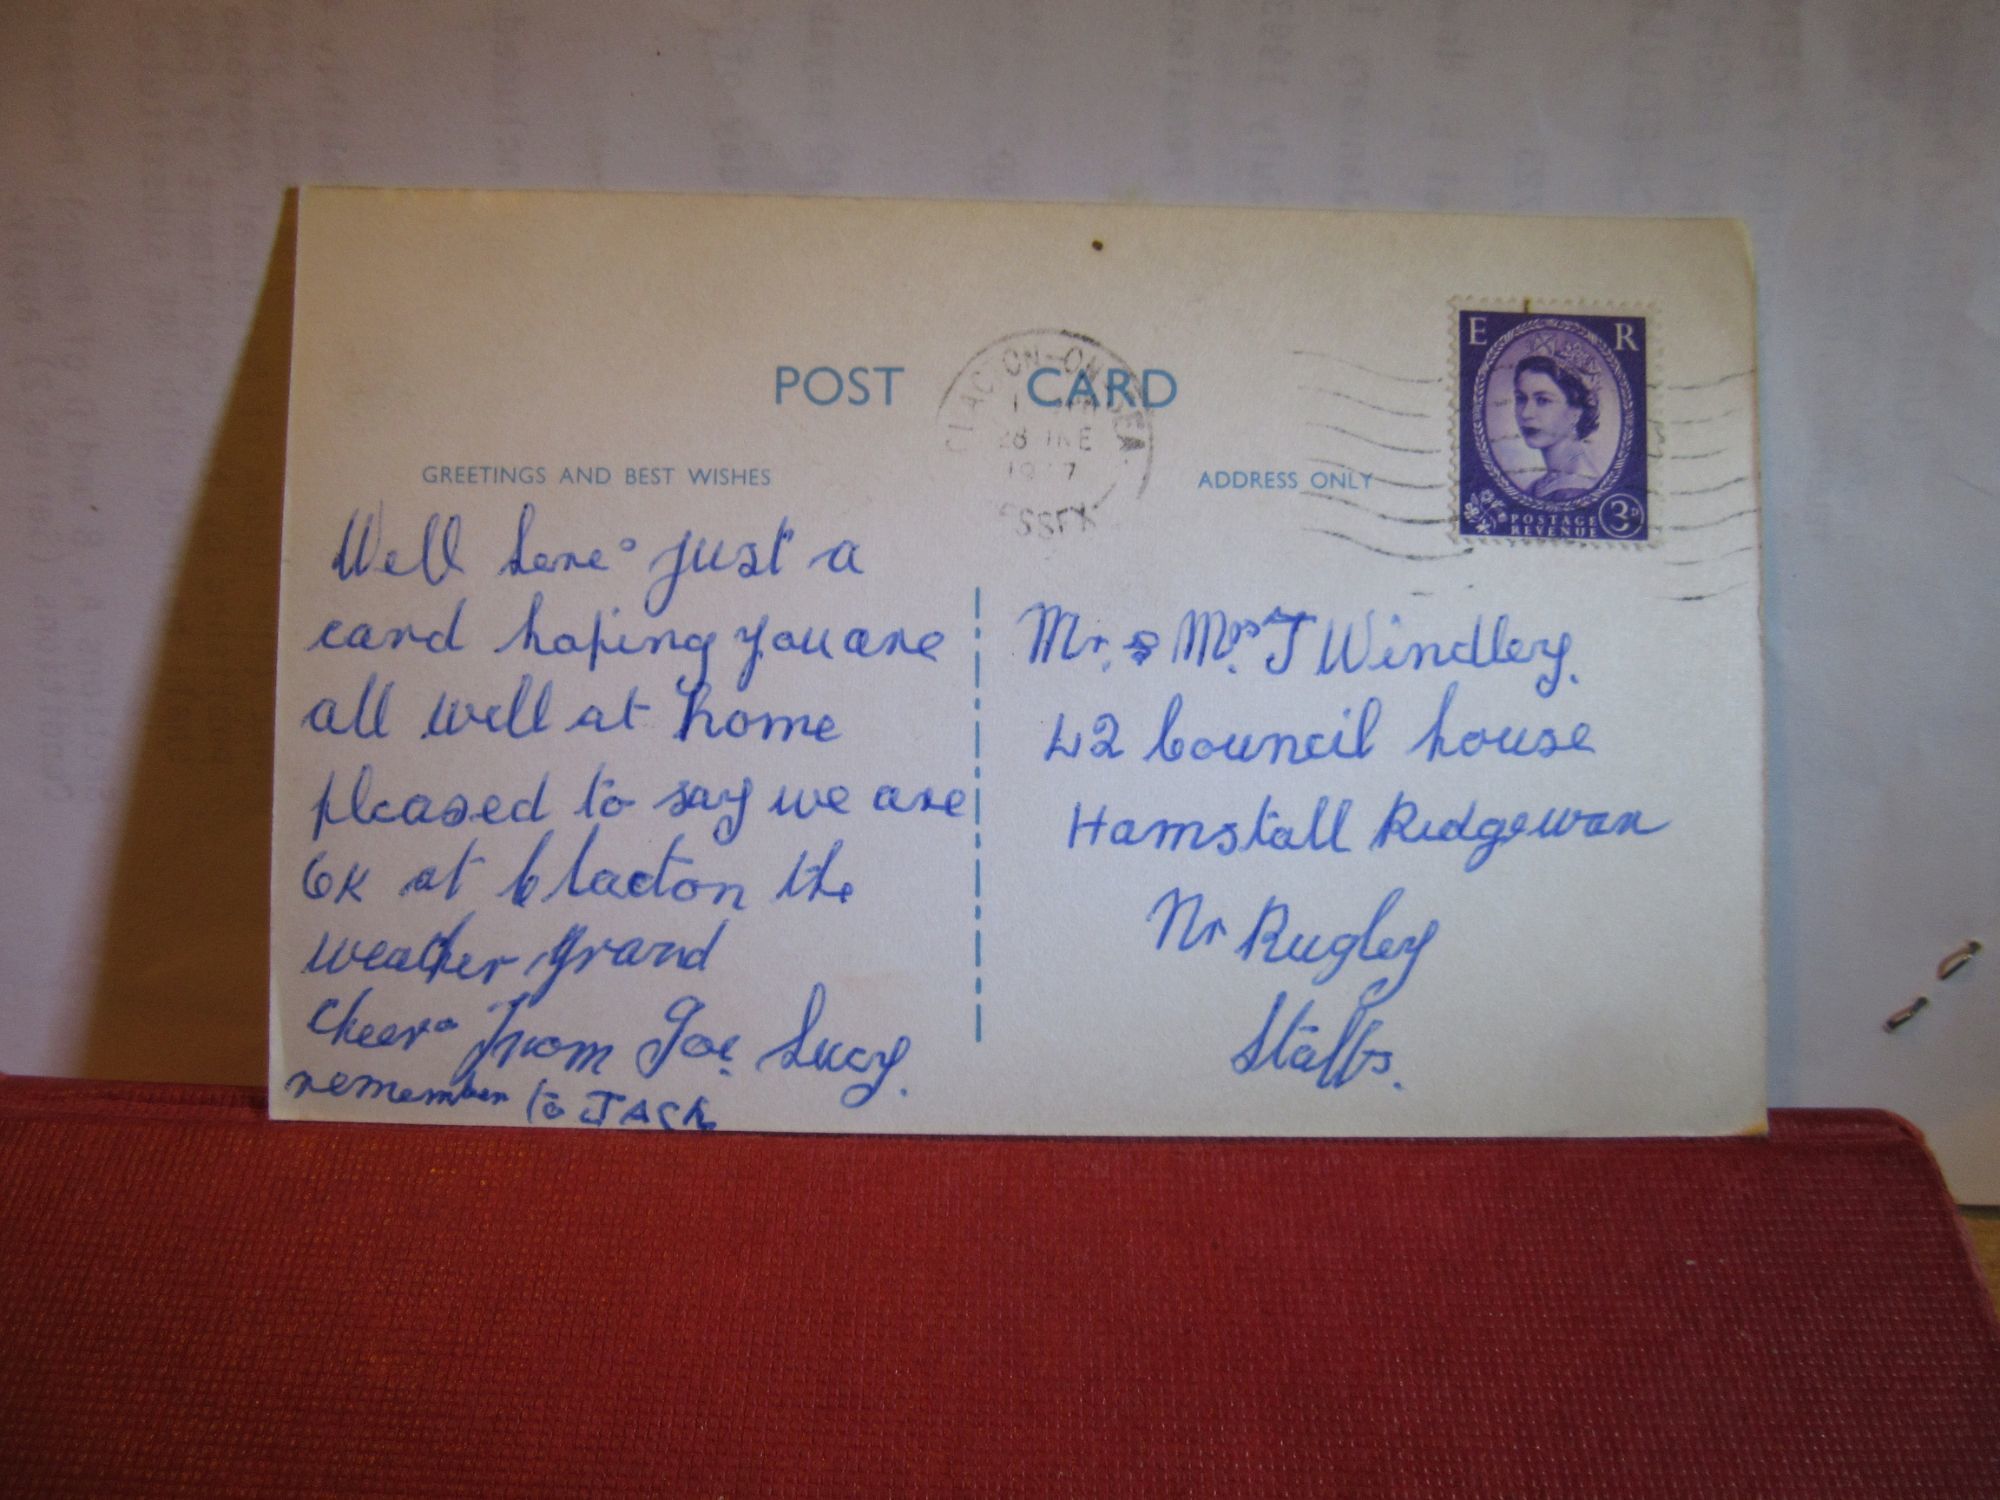 POST CARD
GREETINGS AND BEST WISHES
ADDRESS ONLY
CLACTON-ON-SEA
28 JNE
ESSEX
E R
POSTAGE
REVENUE
3D
Well heres just a
card hoping you are
all well at home
pleased to say we are
OK at Clacton the
weather grand
cheers from Joe Lucy.
remember to JACK
Mr. & Mrs. J Windley.
42 Council house
Hamstall Ridgewan
Nr Rugley
Staffs.